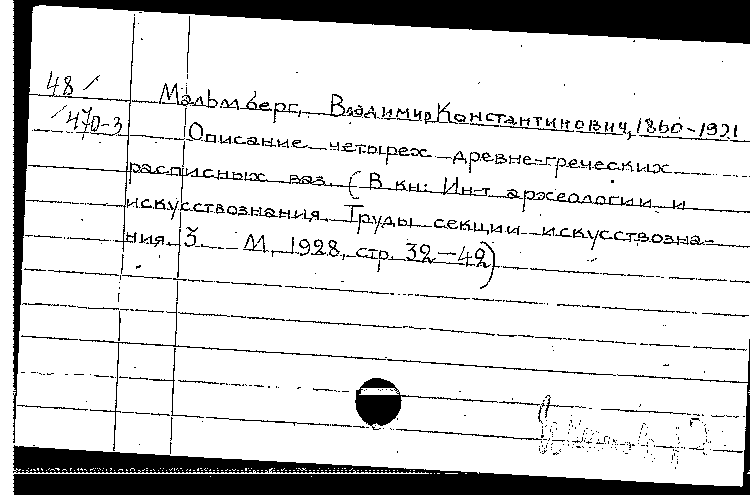 48/
/470-3
Мальмберг, Владимир Константинович, 1860-1921
Описание четырех древне-греческих
расписных ваз. (В кн: Ин-т археологии и
искусствознания. Труды секции искусствозна-
ния. 3. М, 1928, стр. 32-42)